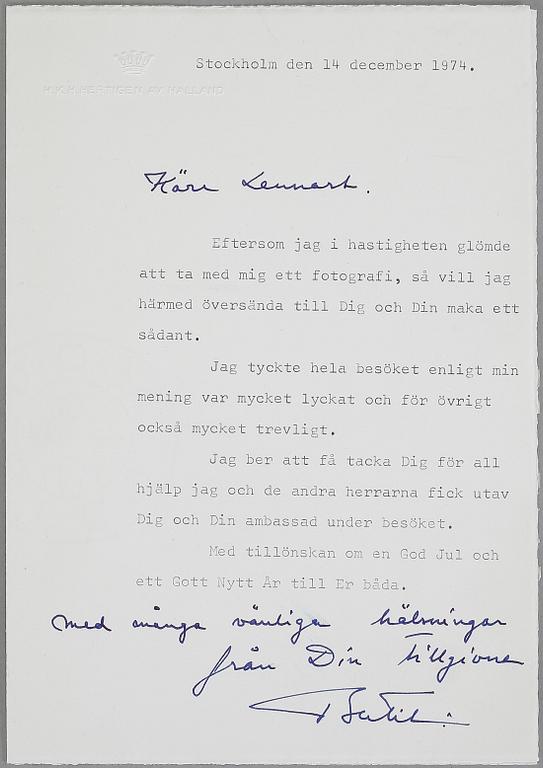 Stockholm den 14 december 1974.
H.K.H. HERTIGEN AV HALLAND
Käre Lennart.
Eftersom jag i hastigheten glömde
att ta med mig ett fotografi, så vill jag
härmed översända till Dig och Din maka ett
sådant.
Jag tyckte hela besöket enligt min
mening var mycket lyckat och för övrigt
också mycket trevligt.
Jag ber att få tacka Dig för all
hjälp jag och de andra herrarna fick utav
Dig och Din ambassad under besöket.
Med tillönskan om en God Jul och
ett Gott Nytt År till Er båda.
med många vänliga hälsningar
från Din tillgivne
Bertil.